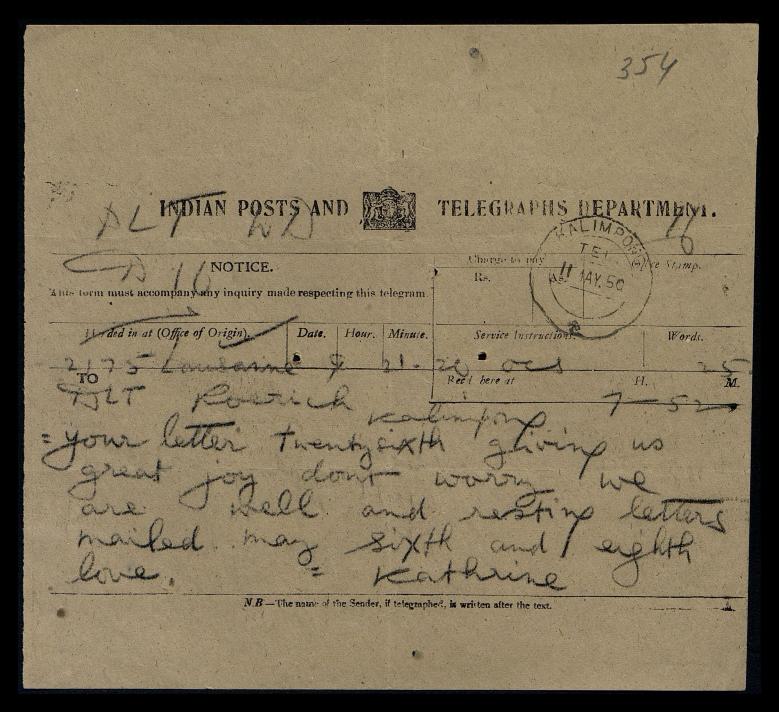 354
INDIAN POSTS AND TELEGRAPHS DEPARTMENT.
DLT
KALIMPONG
TEL
11 MAY. 50
Charge to pay
Stamp.
Rs.
NOTICE.
This form must accompany any inquiry made respecting this telegram.
Handed in at (Office of Origin). Date. Hour. Minute. Service Instructions. Words.
2175 Lausanne 9 21.20 ocs 25
TO
Rec'd here at H. M.
Roerich 7-52
Kalimpong
= your letter twentysixth giving us
great joy dont worry we
are well and resting letters
mailed may sixth and eighth
love. = Kathrine
N.B—The name of the Sender, if telegraphed, is written after the text.